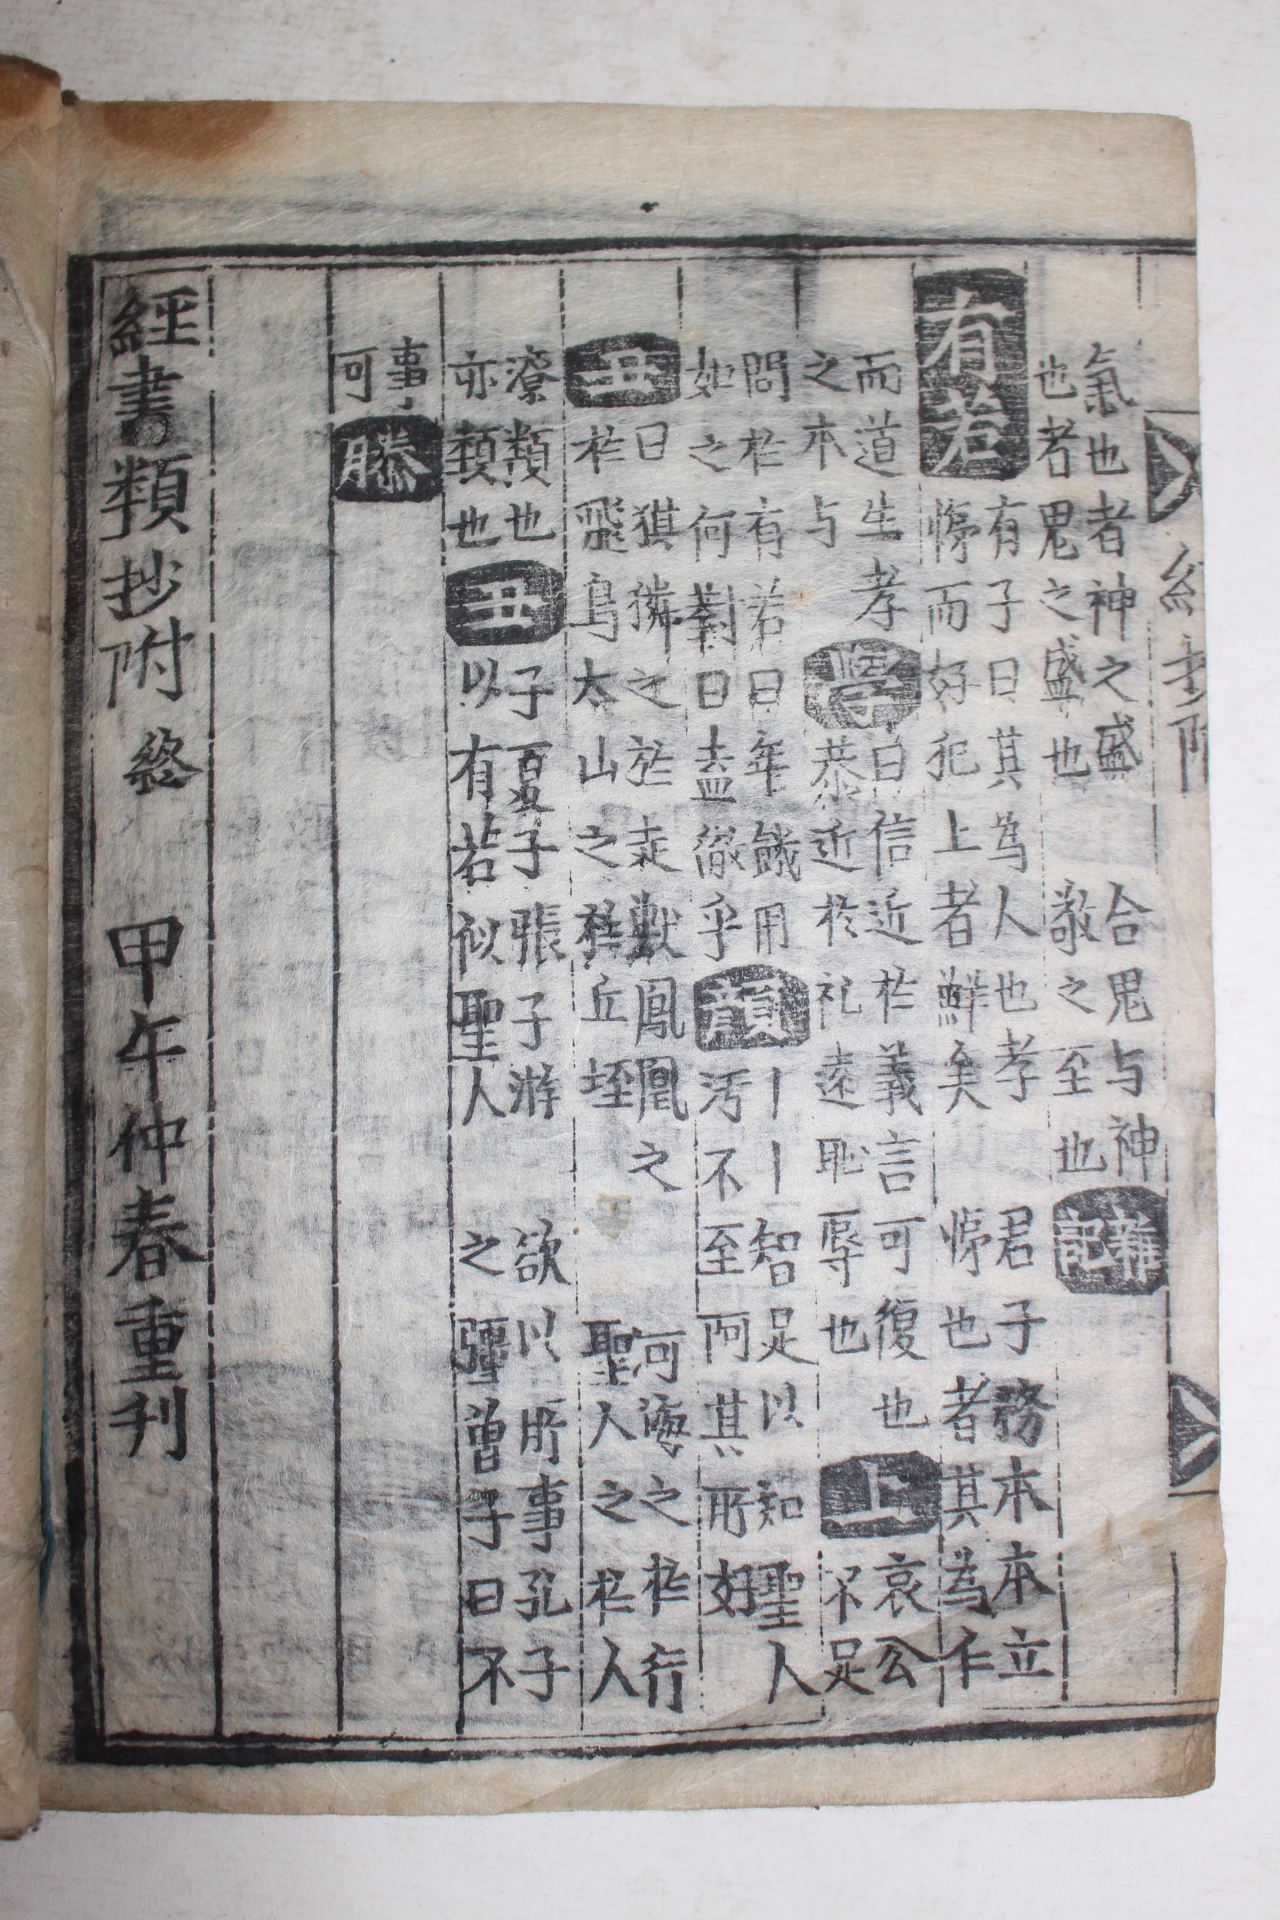 經抄附
氣也者神之盛 合鬼与神
也者鬼之盛也 敬之至也
雜記
有若
有子曰其為人也孝 君子務本本立
悌而好犯上者鮮矣 悌也者其為仁
而道生孝
之本与
學
曰信近於義言可復也
恭近於礼遠恥辱也
上
哀公
不足
問於有若曰年饑用
如之何對曰盍徹乎
顔
丨丨智足以知聖人
汚不至阿其所好
丑
曰猉獜之於走獸鳳凰之 河海之於行
於飛鳥太山之於丘垤 聖人之於人
潦類也
亦類也
丑
子夏子張子游 欲以所事孔子
以有若似聖人 之彊曾子曰不
事
可
滕
經書類抄附終 甲午仲春重刊